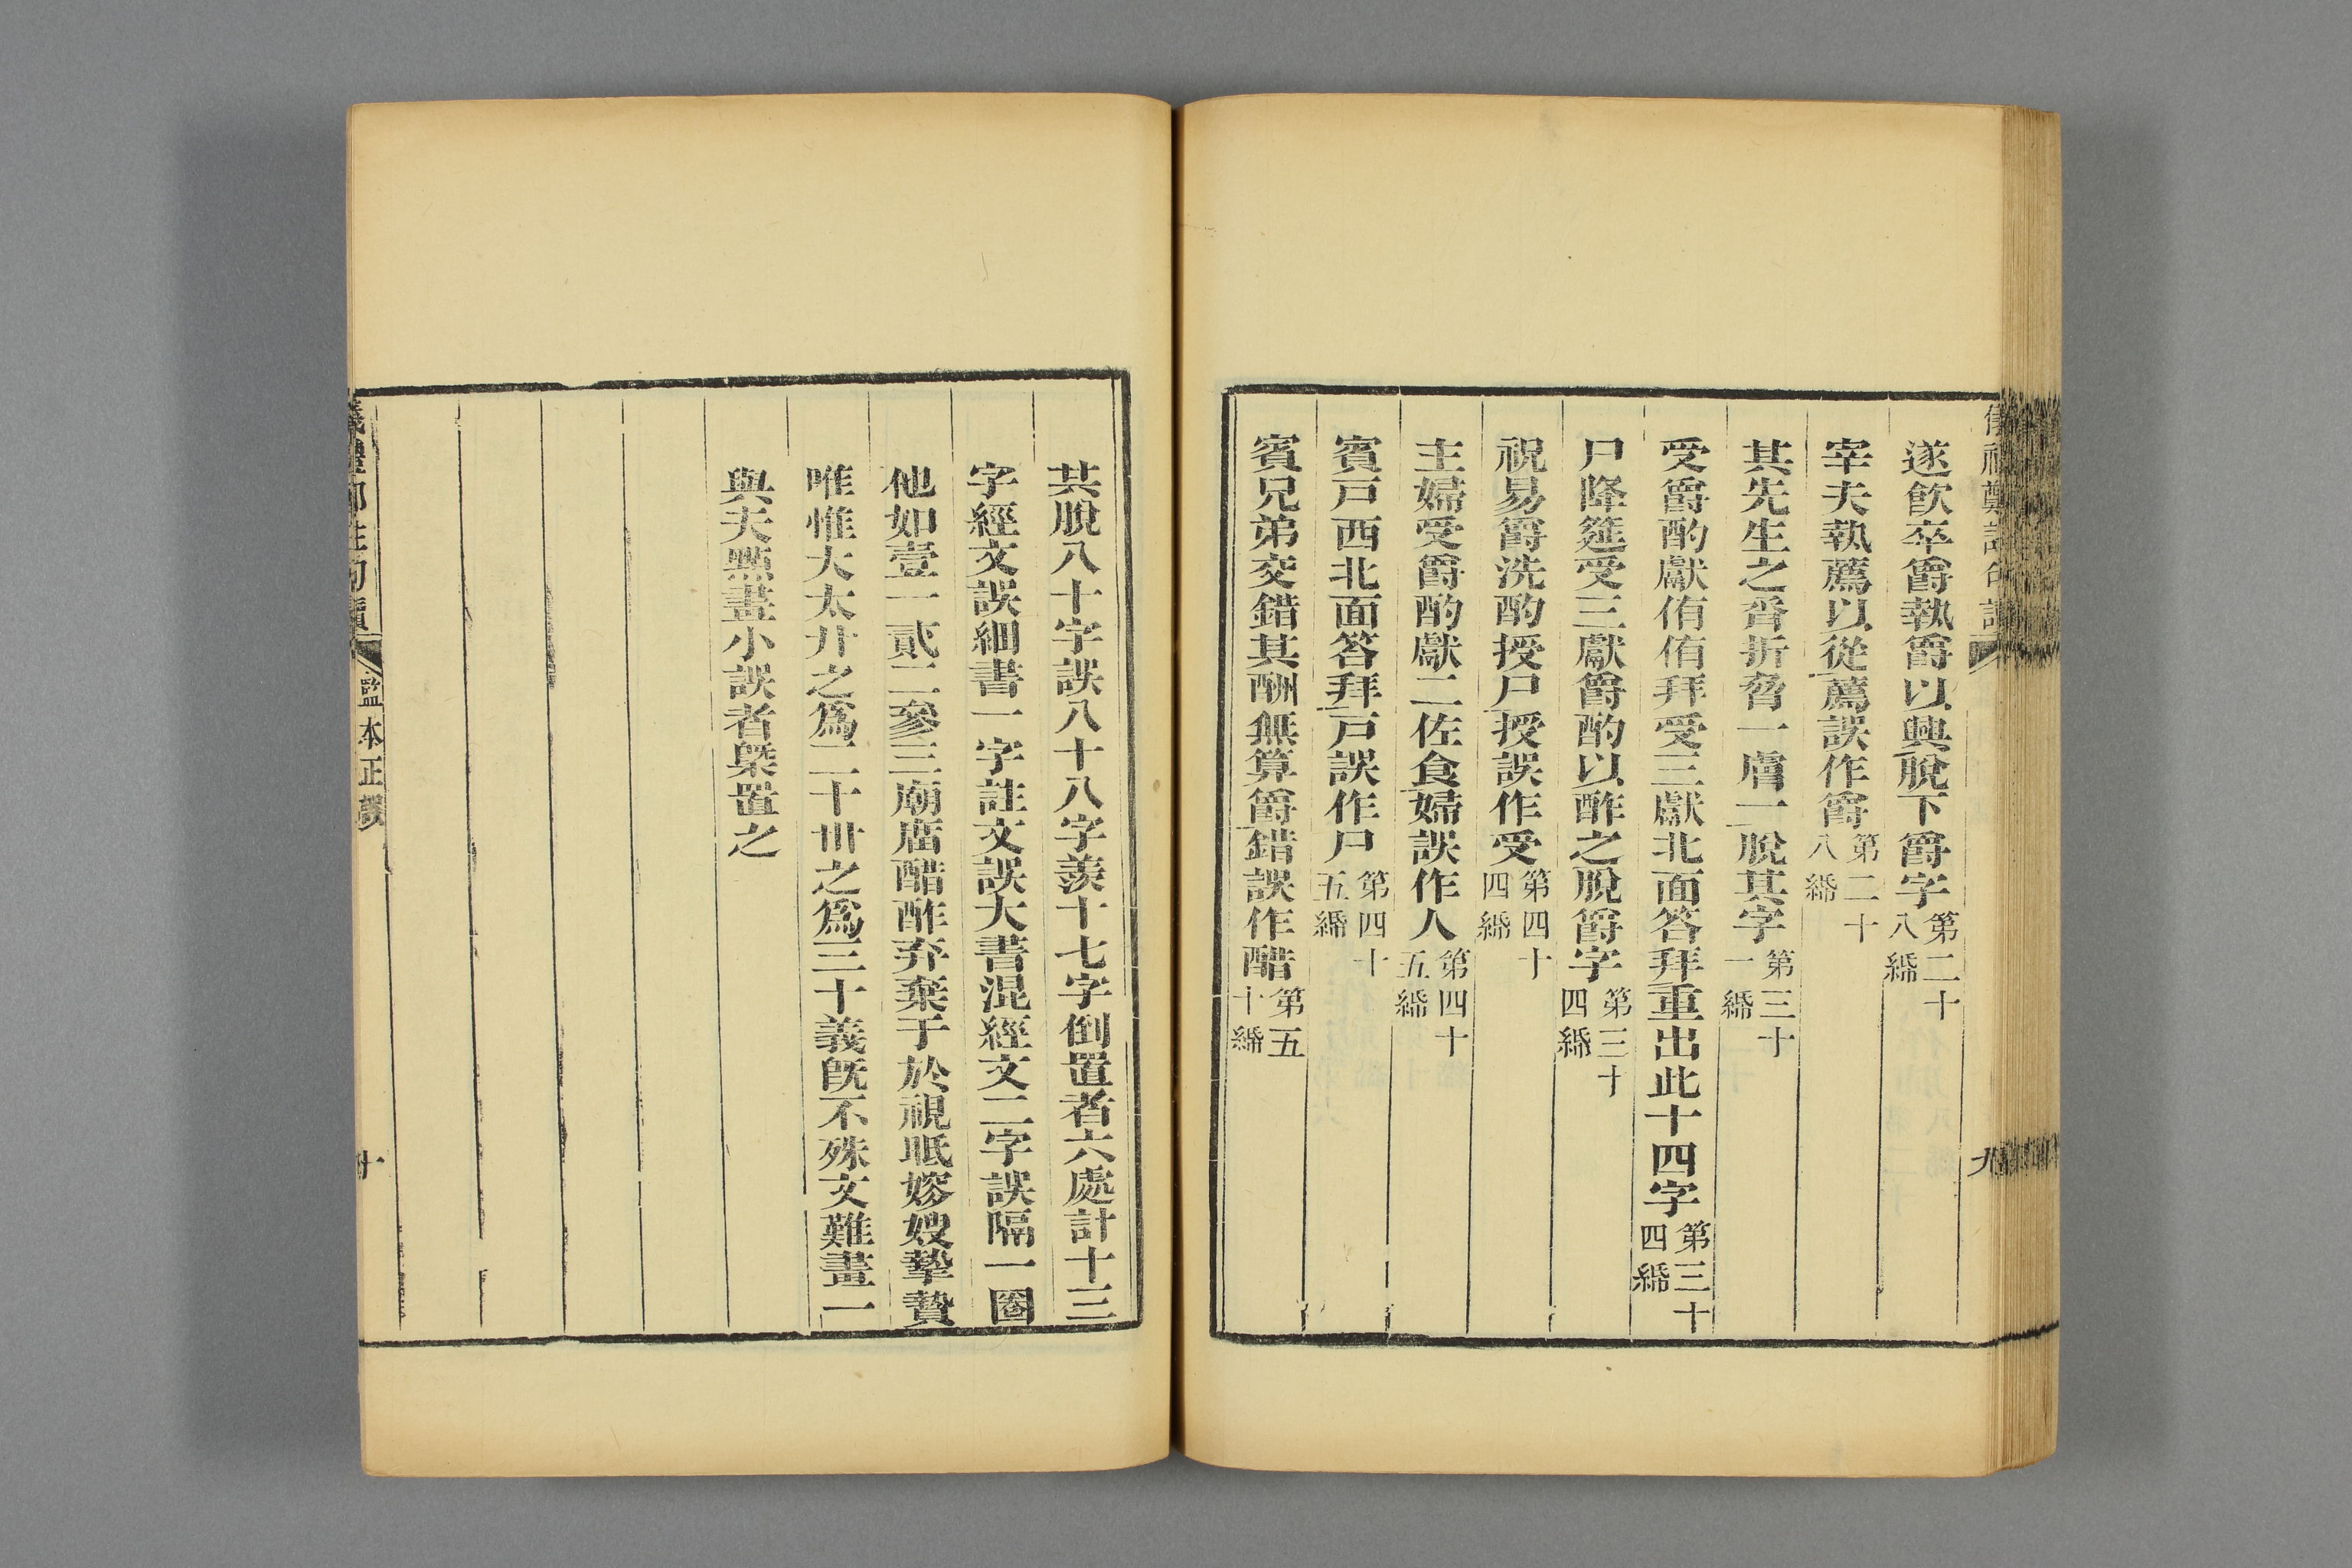 遂飮卒爵執爵以興脫下爵字第二十八緡
宰夫執薦以從薦誤作爵第二十八緡
其先生之脀折脅一膚一脫其字第三十一緡
受爵酌獻侑侑拜受三獻北面答拜重出此十四字第三十四緡
尸降筵受三獻爵酌以酢之脫爵字第三十四緡
祝易爵洗酌授尸授誤作受第四十四緡
主婦受爵酌獻二佐食婦誤作人第四十五緡
賓戸西北面答拜戸誤作尸第四十五緡
賓兄弟交錯其酬無算爵錯誤作醋第五十緡
九
共脫八十字誤八十八字羨十七字倒置者六處計十三
字經文誤細書一字註文誤大書混經文二字誤隔一圈
他如壹一貳二參三廟庿醋酢弃棄于於視眡嫁嫂摯贄
唯惟大太廾之爲二十卅之爲三十義旣不殊文難畫一
與夫點畫小誤者槩置之
監本正誤
十